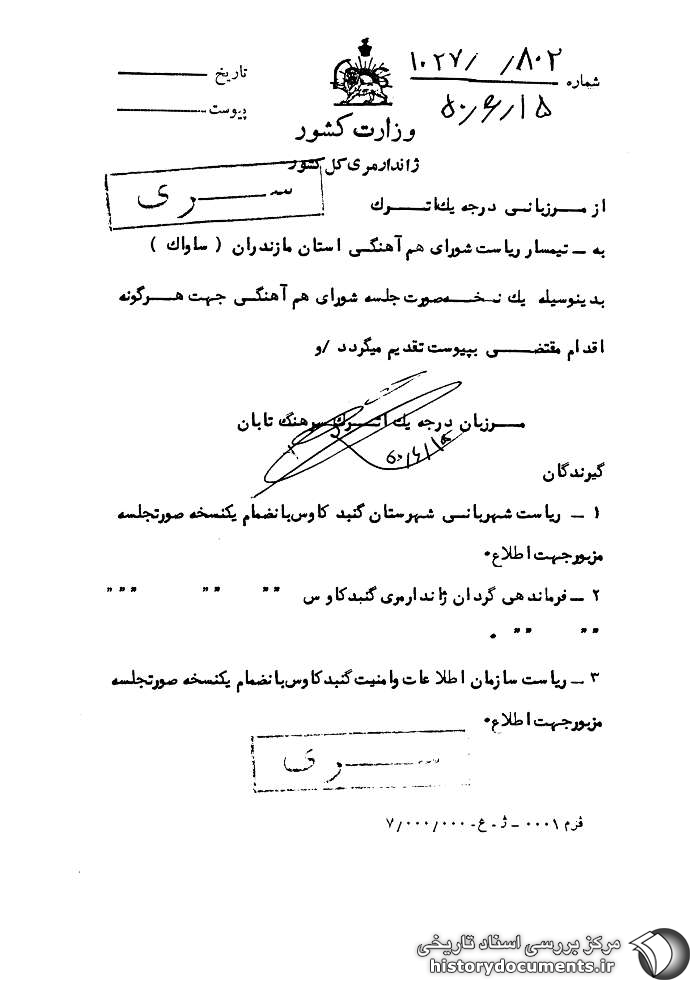 شماره ۱۰۲۷/ /۸۰۲
۵۰/۶/۱۵
تاریخ
پیوست
وزارت کشور
ژاندارمری کل کشور
سری
از مرزبانی درجه یک اترک
به – تیمسار ریاست شورای هم آهنگی استان مازندران ( ساواک )
بدینوسیله یک نسخه صورت جلسه شورای هم آهنگی جهت هرگونه
اقدام مقتضی بپیوست تقدیم میگردد /و
مرزبان درجه یک اترک سرهنگ تابان
۵۰/۶/۱۵
گیرندگان
۱ – ریاست شهربانی شهرستان گنبد کاوس بانضمام یکنسخه صورتجلسه
مزبور جهت اطلاع٠
۲ – فرماندهی گردان ژاندارمری گنبد کاوس " " " " " " "
" " " " .
۳ – ریاست سازمان اطلاعات وامنیت گنبد کاوس بانضمام یکنسخه صورتجلسه
مزبور جهت اطلاع٠
سری
فرم ۰۰۰۱ – ژ - ع - ۷/۰۰۰/۰۰۰
مرکز بررسی اسناد تاریخی
historydocuments.ir